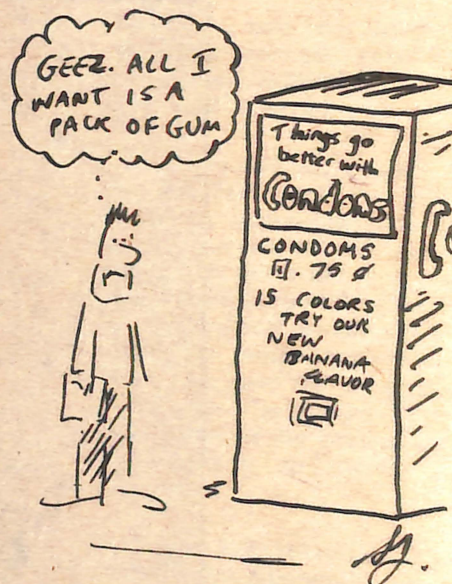 GEEZ. ALL I
WANT IS A
PACK OF GUM
Things go
better with
Condoms
CONDOMS
.75 ¢
15 COLORS
TRY OUR
NEW
BANANA
FLAVOR